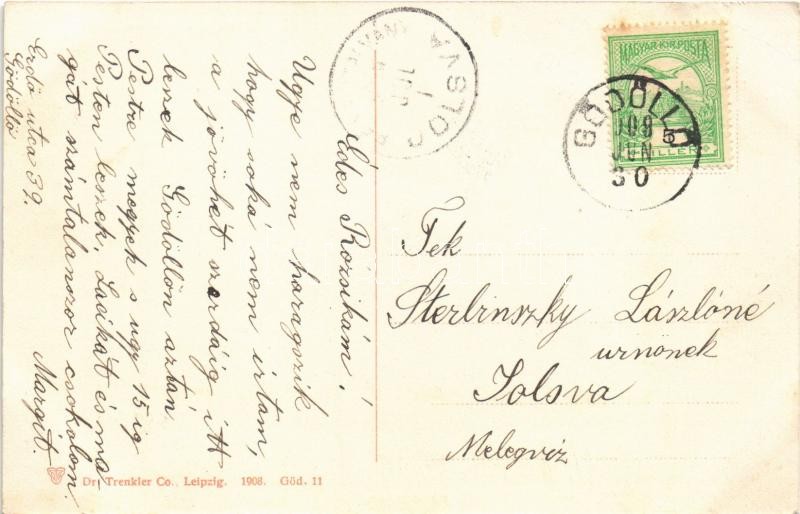 Édes Rózsikám!
Ugye nem haragszik
hogy soká nem irtam,
a jövőhet szerdáig itt
leszek Gödöllőn aztán
Pestre megyek s ugy 15 ig
Pesten leszek. Lacikát és ma-
gát számtalanszor csokolom.
Margit.
Erdő utca 39.
Gödöllő
TOLSVA
MAGYAR KIR. POSTA
5
FILLÉR
GÖDÖLLŐ
909
JUN
30
Tek
Sterbinszky Lászlóné
urnőnek
Jolsva
Melegviz
Dr. Trenkler Co., Leipzig. 1908. Göd. 11